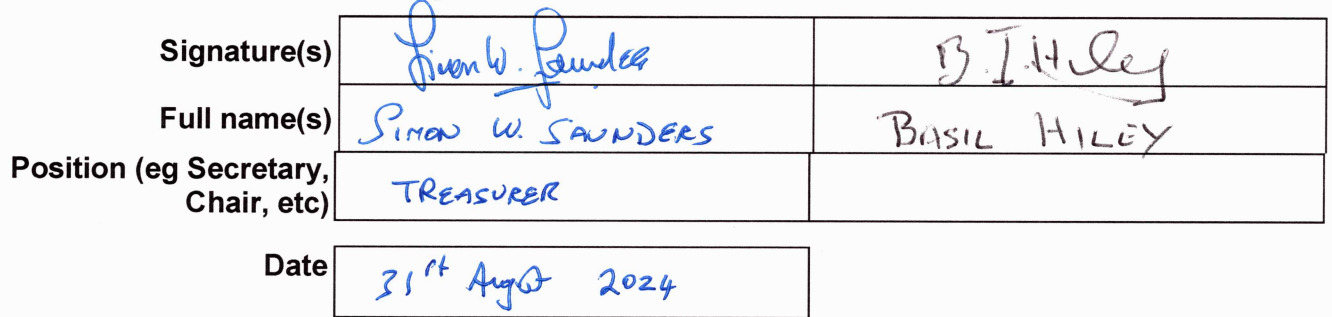 Signature(s) Simon W. Saunders B.I.Hiley
Full name(s) SIMON W. SAUNDERS BASIL HILEY
Position (eg Secretary,
Chair, etc) TREASURER
Date 31st August 2024